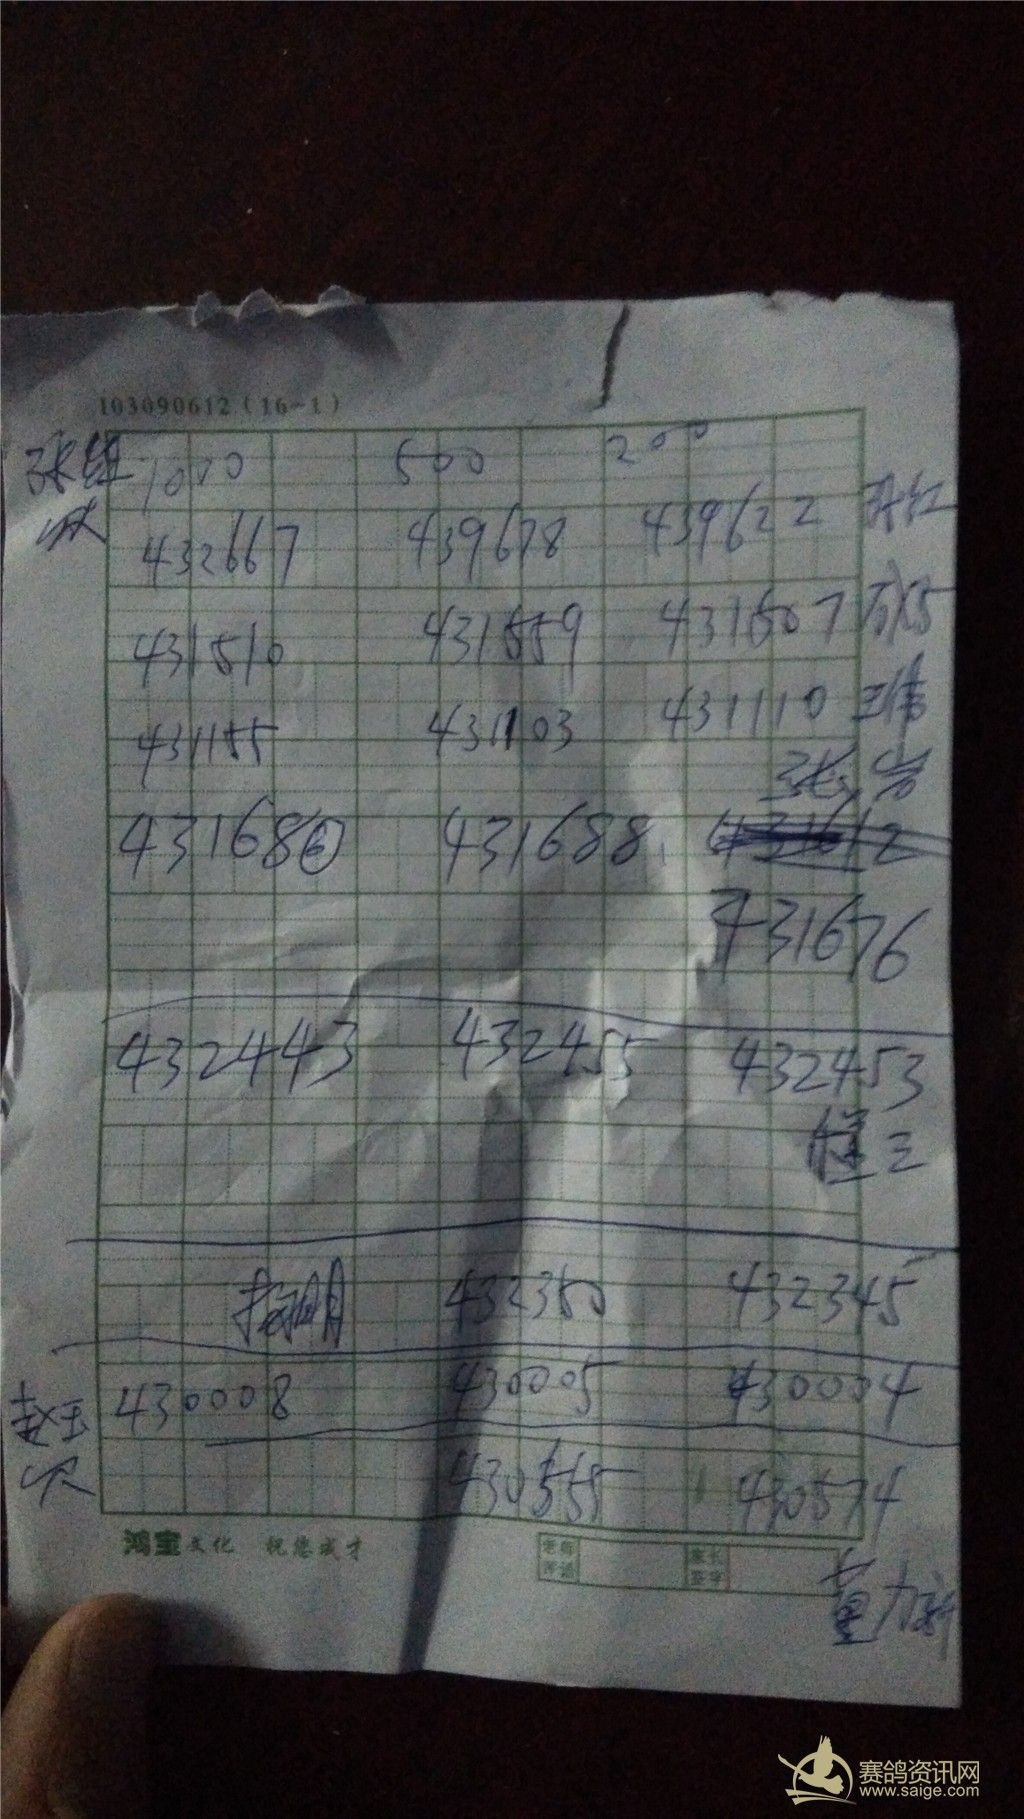 103090612（16-1）
1000 500 200
432667 439678 439622
431510 431559 431507
431155 431103 431110 王伟
431686 431688
431676
432443 432455 432453
三
432350 432345
赵玉 430008 430005 430004
430555 430574
鸿宝文化 祝您成才 老师评语 家长签字
董力新
赛鸽资讯网
www.saige.com